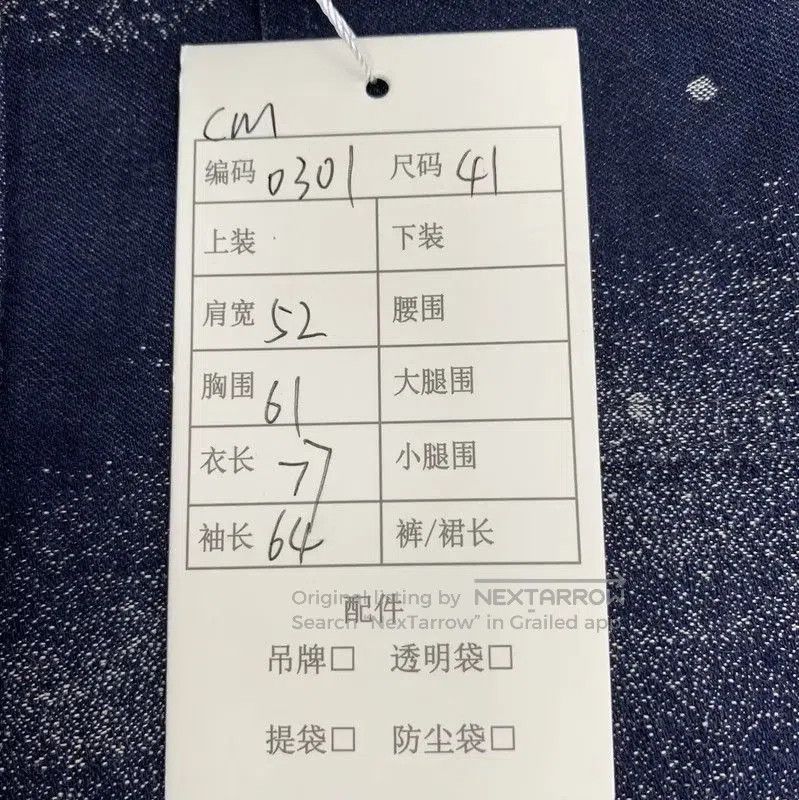 CM
编码 0301 尺码 41
上装 下装
肩宽 52 腰围
胸围 61 大腿围
衣长 77 小腿围
袖长 64 裤/裙长
配件
Original listing by NEXTARROW
Search "NexTarrow" in Grailed app
吊牌□ 透明袋□
提袋□ 防尘袋□